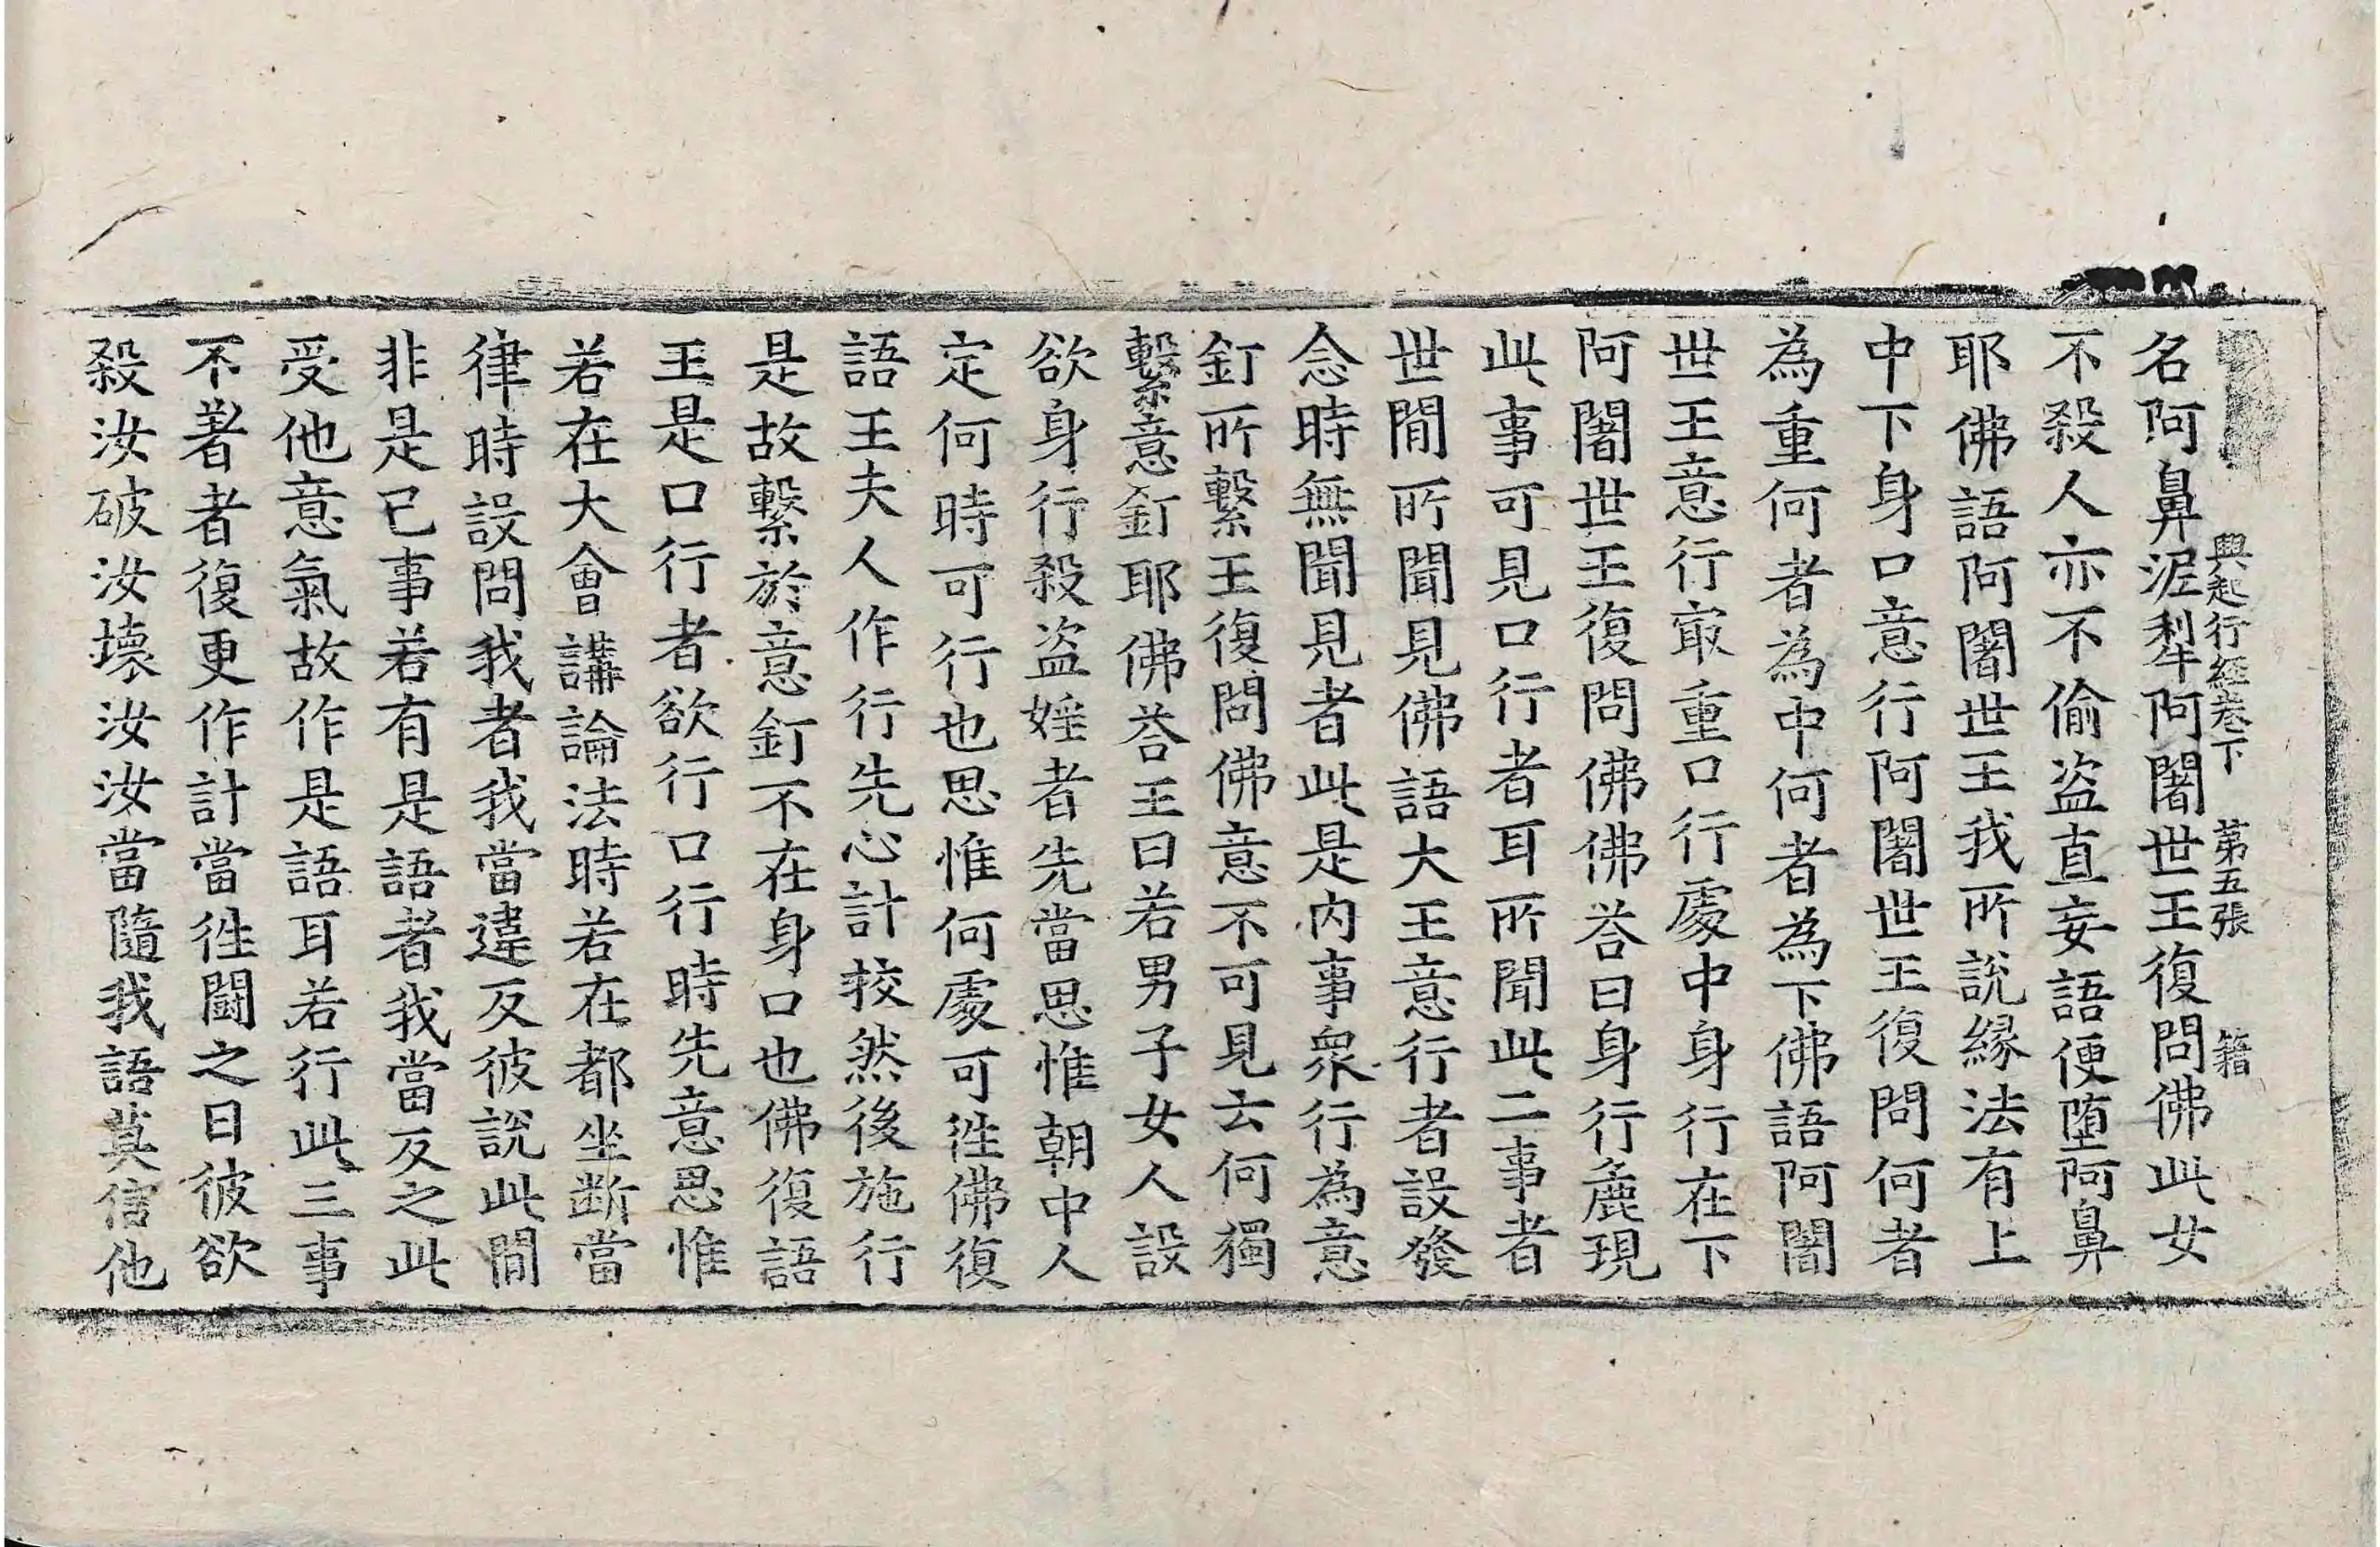 興起行經卷下　第五張　籍
名阿鼻泥犁阿闍世王復問佛此女
不殺人亦不偷盜直妄語便墮阿鼻
耶佛語阿闍世王我所說緣法有上
中下身口意行阿闍世王復問何者
為重何者為中何者為下佛語阿闍
世王意行最重口行處中身行在下
阿闍世王復問佛佛荅曰身行麁現
此事可見口行者耳所聞此二事者
世間所聞見佛語大王意行者設發
念時無聞見者此是內事衆行為意
釘所繫王復問佛意不可見云何獨
繫意釘耶佛荅王曰若男子女人設
欲身行殺盜婬者先當思惟朝中人
定何時可行也思惟何處可往佛復
語王夫人作行先心計挍然後施行
是故繫於意釘不在身口也佛復語
王是口行者欲行口行時先意思惟
若在大會講論法時若在都坐斷當
律時設問我者我當違反彼說此間
非是已事若有是語者我當反之此
受他意氣故作是語耳若行此三事
不著者復更作計當往鬪之曰彼欲
殺汝破汝壞汝汝當隨我語莫信他